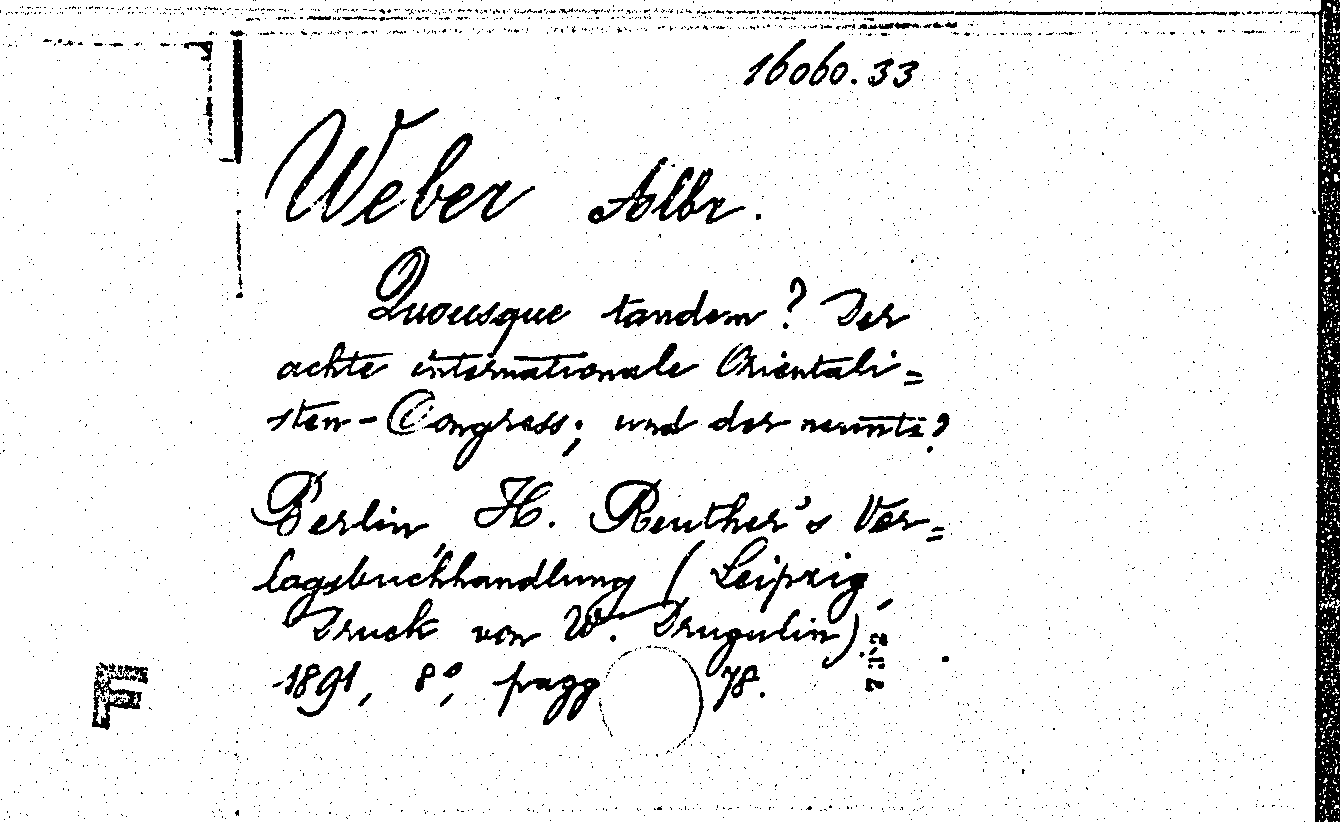 16060.33
Weber Albr.
Quousque tandem? Der
achte internationale Orientali=
sten-Congress; und der neunte?
Berlin, H. Reuther's Ver=
lagsbuchhandlung (Leipzig,
Druck von W. Drugulin).
1891, 8°, pagg 78.
F